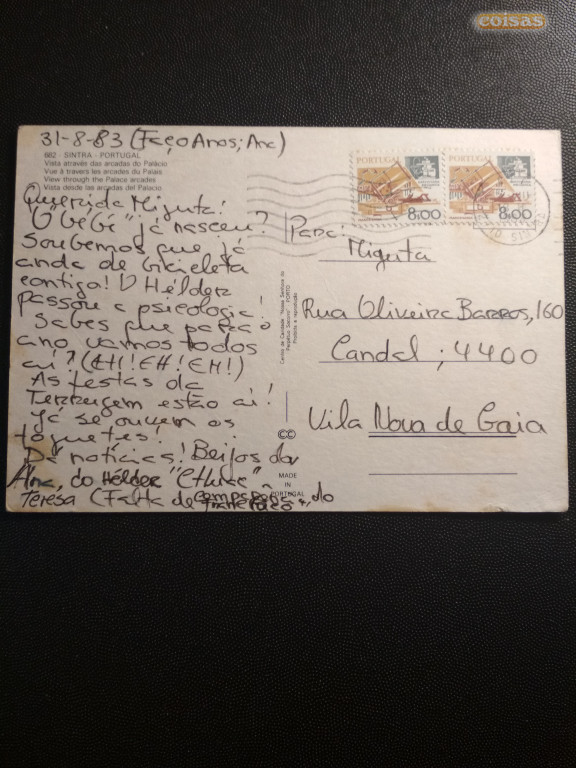 coisas
31-8-83 (Faço Anos; Ana)
682 - SINTRA - PORTUGAL
Vista através das arcadas do Palácio
Vue à travers les arcades du Palais
View through the Palace arcades
Vista desde las arcadas del Palacio
Querida Miguta!
"O bébé" já nasceu?
Soubemos que já
anda de bicicleta
contigo! O Hélder
passou a psicologia!
Sabes que para o
ano vamos todos
aí? (EH! EH! EH!)
As festas da
Terrugem estão aí!
Já se ouvem os
foguetes!
Dá notícias! Beijos da
Ana, do Hélder
Teresa (Falta de
PORTUGAL 8.00
PORTUGAL 8.00
Para:
Miguta
Rua Oliveira Barros, 160
Candal; 4400
Vila Nova de Gaia
Centro de Caridade "Nossa Senhora do
Perpétuo Socorro" PORTO
Proibida a reprodução
CC
MADE
IN
PORTUGAL